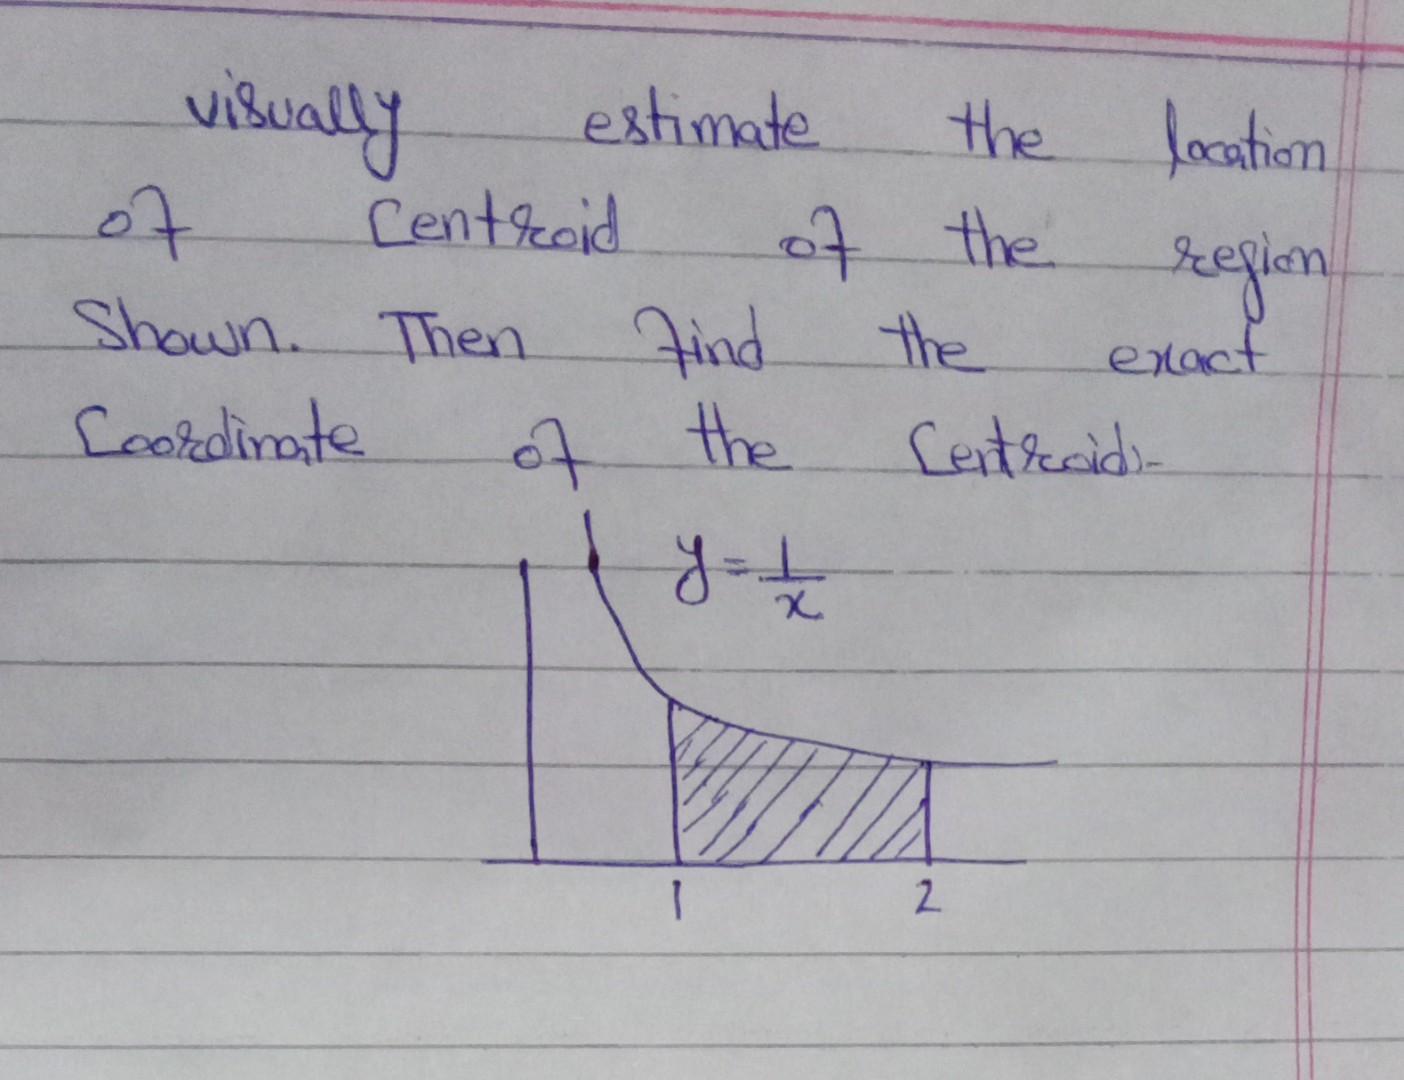 visually estimate the location
of Centroid of the region
Shown. Then find the exact
Coordinate of the Centroid:-
y = 1/x
1 2